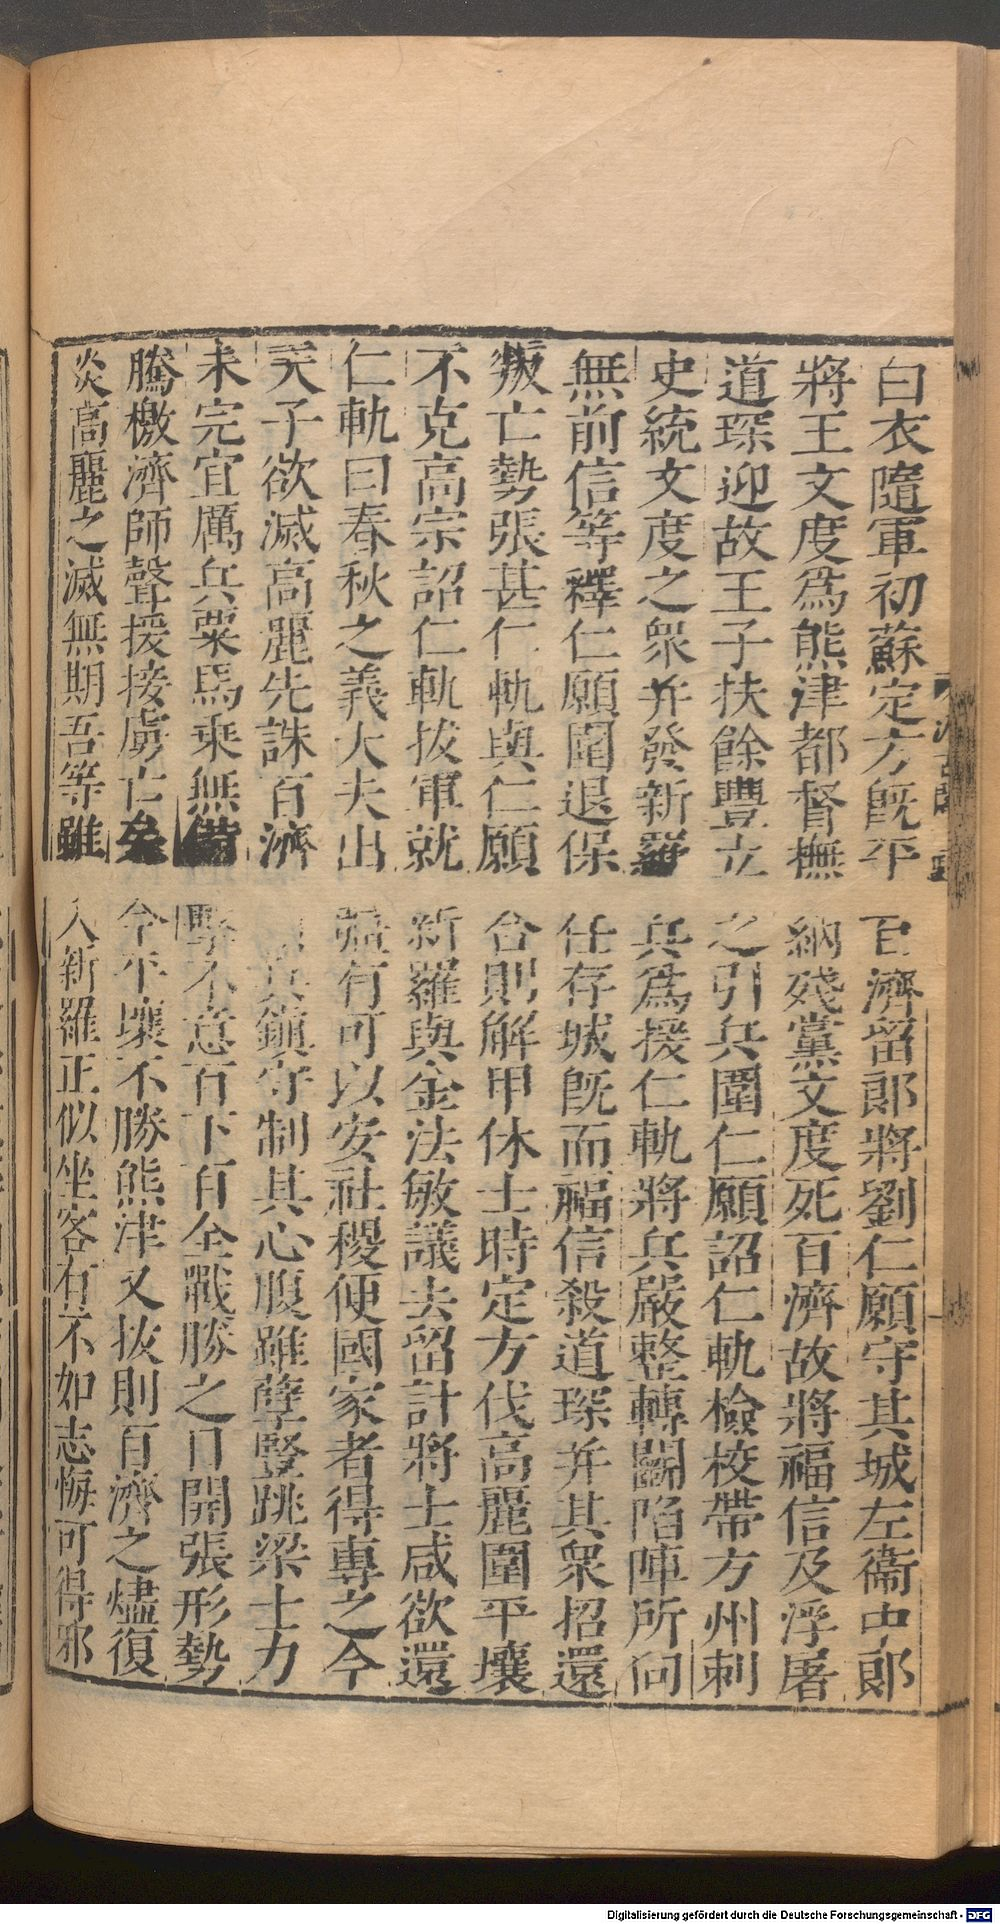 白衣隨軍初蘇定方既平百濟留郎將劉仁願守其城左衞中郎
將王文度爲熊津都督撫納殘黨文度死百濟故將福信及浮屠
道琛迎故王子扶餘豐立之引兵圍仁願詔仁軌檢校帶方州刺
史統文度之眾并發新羅兵爲援仁軌將兵嚴整轉鬬陷陣所向
無前信等釋仁願圍退保任存城既而福信殺道琛并其眾招還
叛亡勢張甚仁軌與仁願合則解甲休士時定方伐高麗圍平壤
不克高宗詔仁軌拔軍就新羅與金法敏議去留計將士咸欲還
仁軌曰春秋之義大夫出疆有可以安社稷便國家者得專之今
天子欲滅高麗先誅百濟兵鎮守制其心腹雖孽豎跳梁士力
未完宜厲兵粟馬乘無備擊不意百下百全戰勝之日開張形勢
騰檄濟師聲援接虜亡矣今平壤不勝熊津又拔則百濟之燼復
炎高麗之滅無期吾等雖入新羅正似坐客有不如志悔可得邪
Digitalisierung gefördert durch die Deutsche Forschungsgemeinschaft - DFG